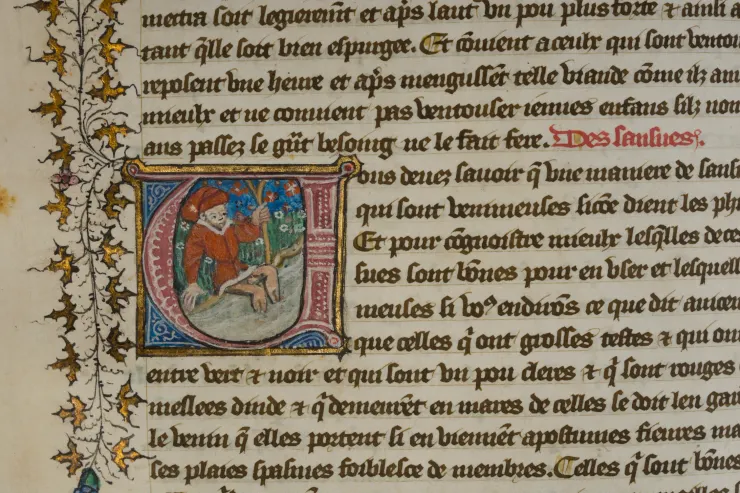 mectra soit legierem̄t et ap̄s laut vn pou plus forte ⁊ ainsi a
tant q̄lle soit bien espurgee. Et cōuient a ceulx qui sont ventou
reposent vne heure et ap̄s mengussēt telle viande cōme ilz au
mieulx et ne conuient pas ventouser ieunes enfans silz non
ans passez se gūt besoing ne le fait fere. Des sansues.
ous deuez sauoir q̄ vne maniere de sans
qui sont venimeuses sicōe dient les phi
Et pour cōgnoistre mieulx lesq̄lles de ces
sues sont bōnes pour en vser et lesquell
meuses si voꝰ endirōs ce que dit auicen
que celles q̄ ont grosses testes ⁊ qui on
entre vert ⁊ noir et qui sont vn pou cleres ⁊ q̄ sont rouges
meslees dinde ⁊ q̄ demeurēt en mares de celles se doit len gar
le venin q̄ elles portent si en viennēt apostumes fieures ma
ses plaies spasmes foiblesce de membres. Celles q̄ sont bōnes